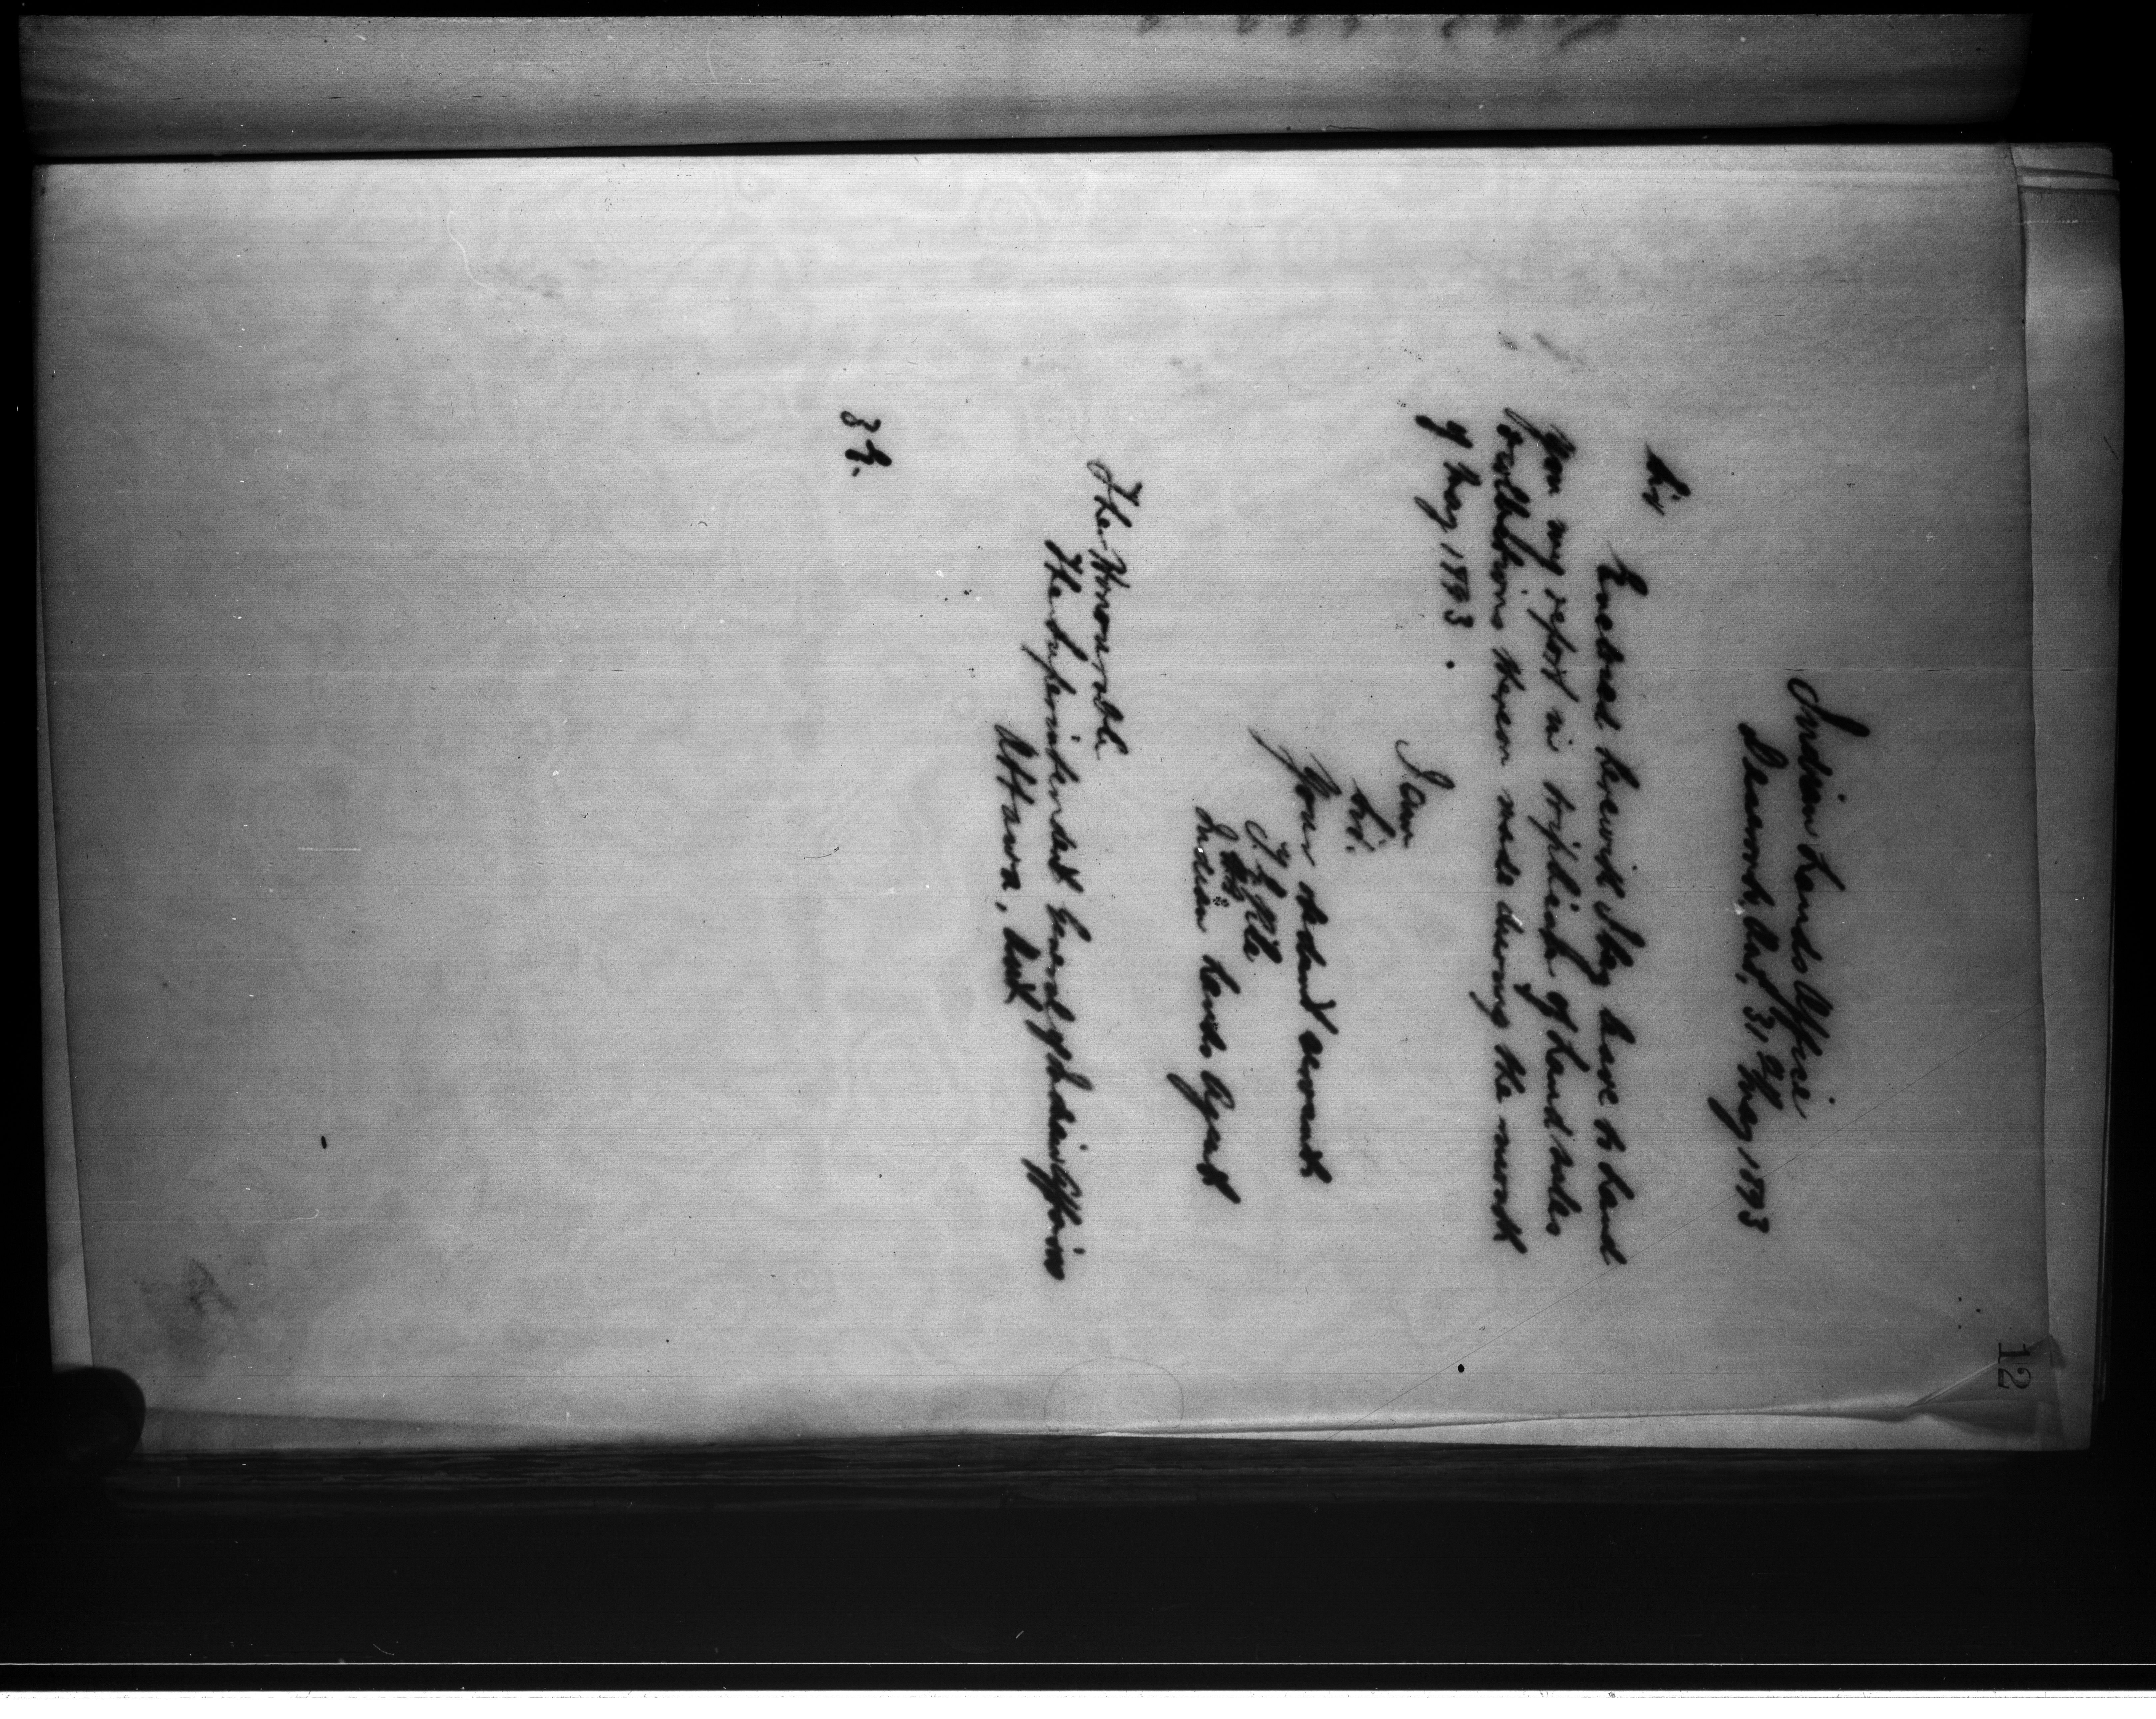 12
Indian Lands Office
Deseronto, Ont, 31st May 1893
Sir
Enclosed herewith I beg leave to hand
you my report in triplicate of Land sales
& collections thereon made during the month
of May, 1893.
I am
Sir.
Your obedient servant
Indian Lands Agent
The Honourable
The Superintendent General of Indian Affairs
Ottawa, Ont